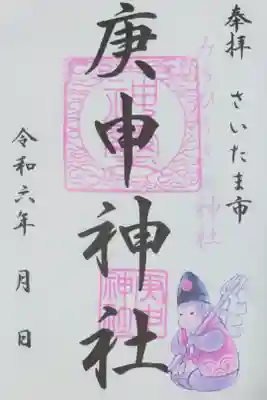 奉拝 さいたま市
庚申神社
令和六年 月 日